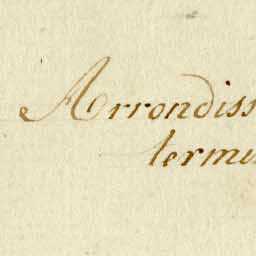 Arrondiss
termi